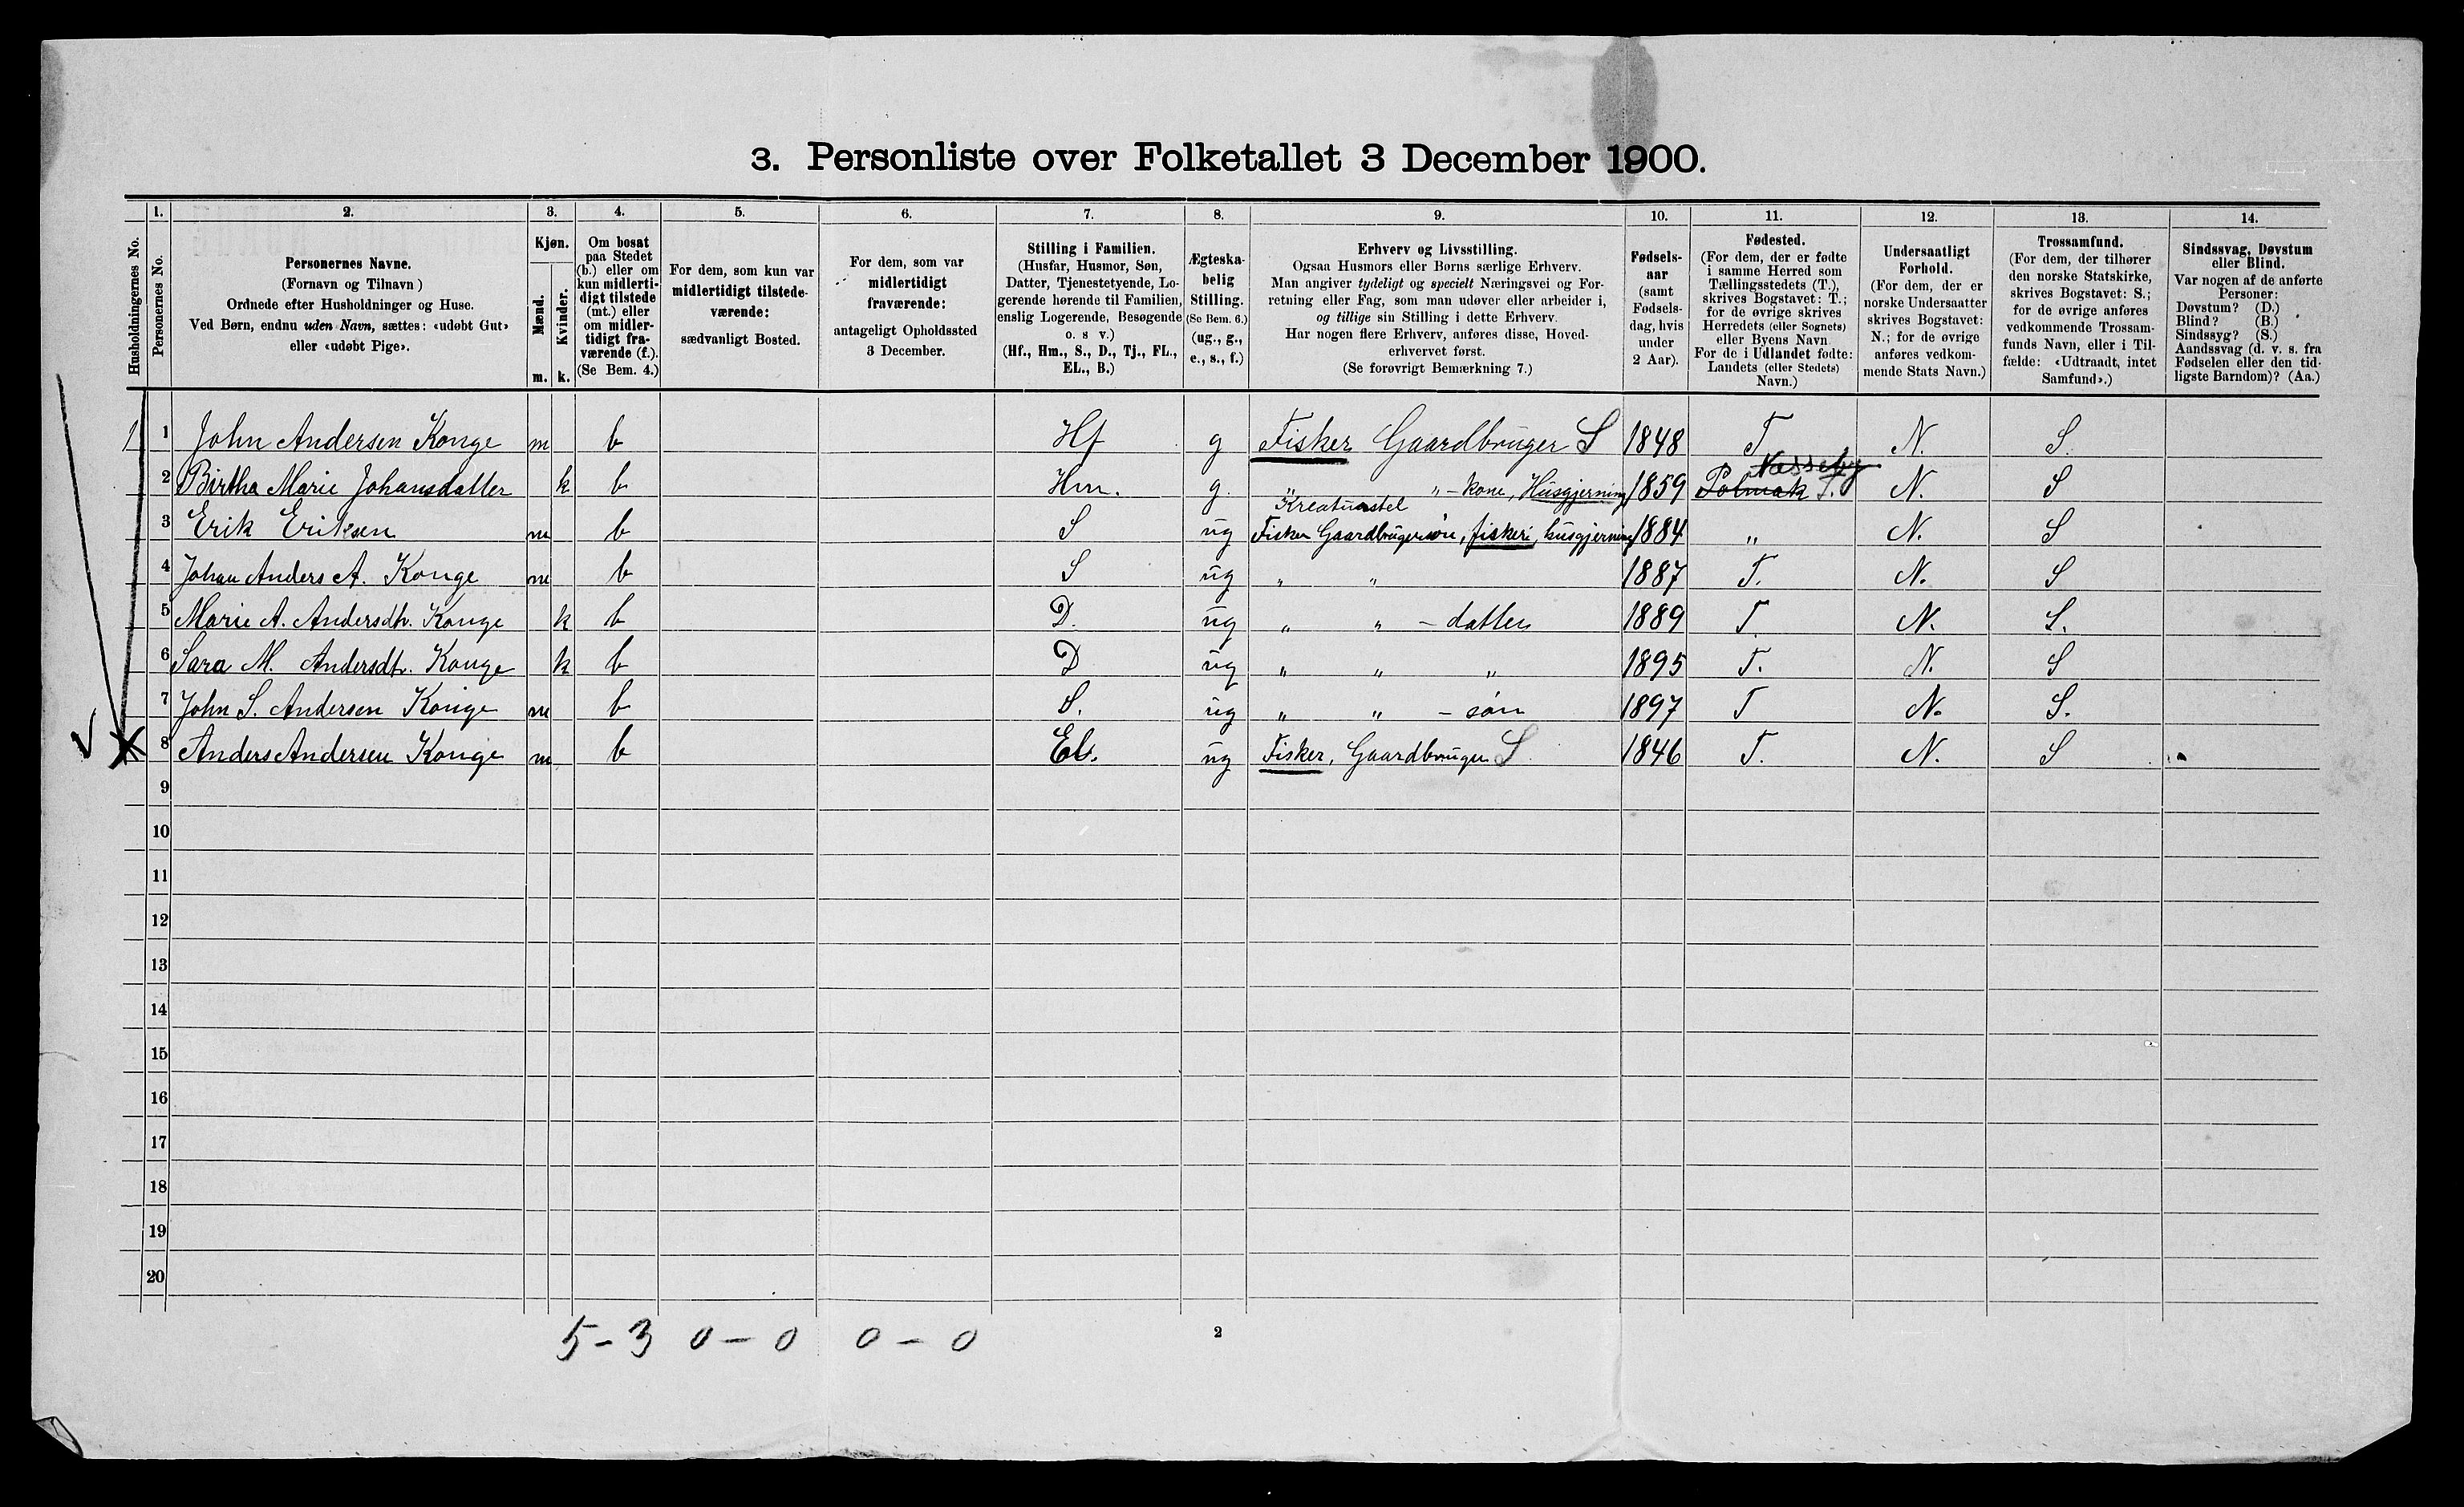 3. Personliste over Folketallet 3 December 1900.
Husholdningernes No.
1.
Personernes No.
2.
Personernes Navne.
(Fornavn og Tilnavn)
Ordnede efter Husholdninger og Huse.
Ved Børn, endnu uden Navn, sættes: «udøbt Gut»
eller «udøbt Pige».
3.
Kjøn.
Mænd.
Kvinder.
m. k.
4.
Om bosat
paa Stedet
(b.) eller om
kun midlerti-
digt tilstede
(mt.) eller
om midler-
tidigt fra-
værende (f.).
(Se Bem. 4.)
5.
For dem, som kun var
midlertidigt tilstede-
værende:
sædvanligt Bosted.
6.
For dem, som var
midlertidigt
fraværende:
antageligt Opholdssted
3 December.
7.
Stilling i Familien.
(Husfar, Husmor, Søn,
Datter, Tjenestetyende, Lo-
gerende hørende til Familien,
enslig Logerende, Besøgende
o. s v.)
(Hf., Hm., S., D., Tj., FL.,
EL., B.)
8.
Ægteska-
belig
Stilling.
(Se Bem. 6.)
(ug., g.,
e., s., f.)
9.
Erhverv og Livsstilling.
Ogsaa Husmors eller Børns særlige Erhverv.
Man angiver tydeligt og specielt Næringsvei og For-
retning eller Fag, som man udøver eller arbeider i,
og tillige sin Stilling i dette Erhverv.
Har nogen flere Erhverv, anføres disse, Hoved-
erhvervet først.
(Se forøvrigt Bemærkning 7.)
10.
Fødsels-
aar
(samt
Fødsels-
dag, hvis
under
2 Aar).
11.
Fødested.
(For dem, der er fødte
i samme Herred som
Tællingsstedets (T.),
skrives Bogstavet: T.;
for de øvrige skrives
Herredets (eller Sognets)
eller Byens Navn.
For de i Udlandet fødte:
Landets (eller Stedets)
Navn.)
12.
Undersaatligt
Forhold.
(For dem, der er
norske Undersaatter
skrives Bogstavet:
N.; for de øvrige
anføres vedkom-
mende Stats Navn.)
13.
Trossamfund.
(For dem, der tilhører
den norske Statskirke,
skrives Bogstavet: S.;
for de øvrige anføres
vedkommende Trossam-
funds Navn, eller i Til-
fælde: «Udtraadt, intet
Samfund».)
14.
Sindssvag, Døvstum
eller Blind.
Var nogen af de anførte
Personer:
Døvstum? (D.)
Blind? (B.)
Sindssyg? (S.)
Aandssvag (d. v. s. fra
Fødselen eller den tid-
ligste Barndom)? (Aa.)
1 1 John Andersen Konge m b Hf g Fisker Gaardbruger S 1848 T N. S.
2 Birtha Marie Johansdatter k b Hm. g. " " - kone, Husgjerning 1859 Polmak T. Nesseby N. S
Kreaturstel
3 Erik Eriksen m b S ug Fisker Gaardbrugersøn, fiskeri, husgjerning 1884 " N. S
4 Johan Anders A. Konge m b S ug " " 1887 T. N. S
5 Marie A. Andersdtr. Konge k b D. ug " " - datter 1889 T. N. S.
6 Sara M. Andersdtr. Konge k b D ug " " " 1895 T. N. S
7 John S. Andersen Konge m b S. ug " " - søn 1897 T N. S.
8 Anders Andersen Konge m b El. ug Fisker, Gaardbruger S 1846 T. N. S
9
10
11
12
13
14
15
16
17
18
19
20
5 - 3 0 - 0 0 - 0
2